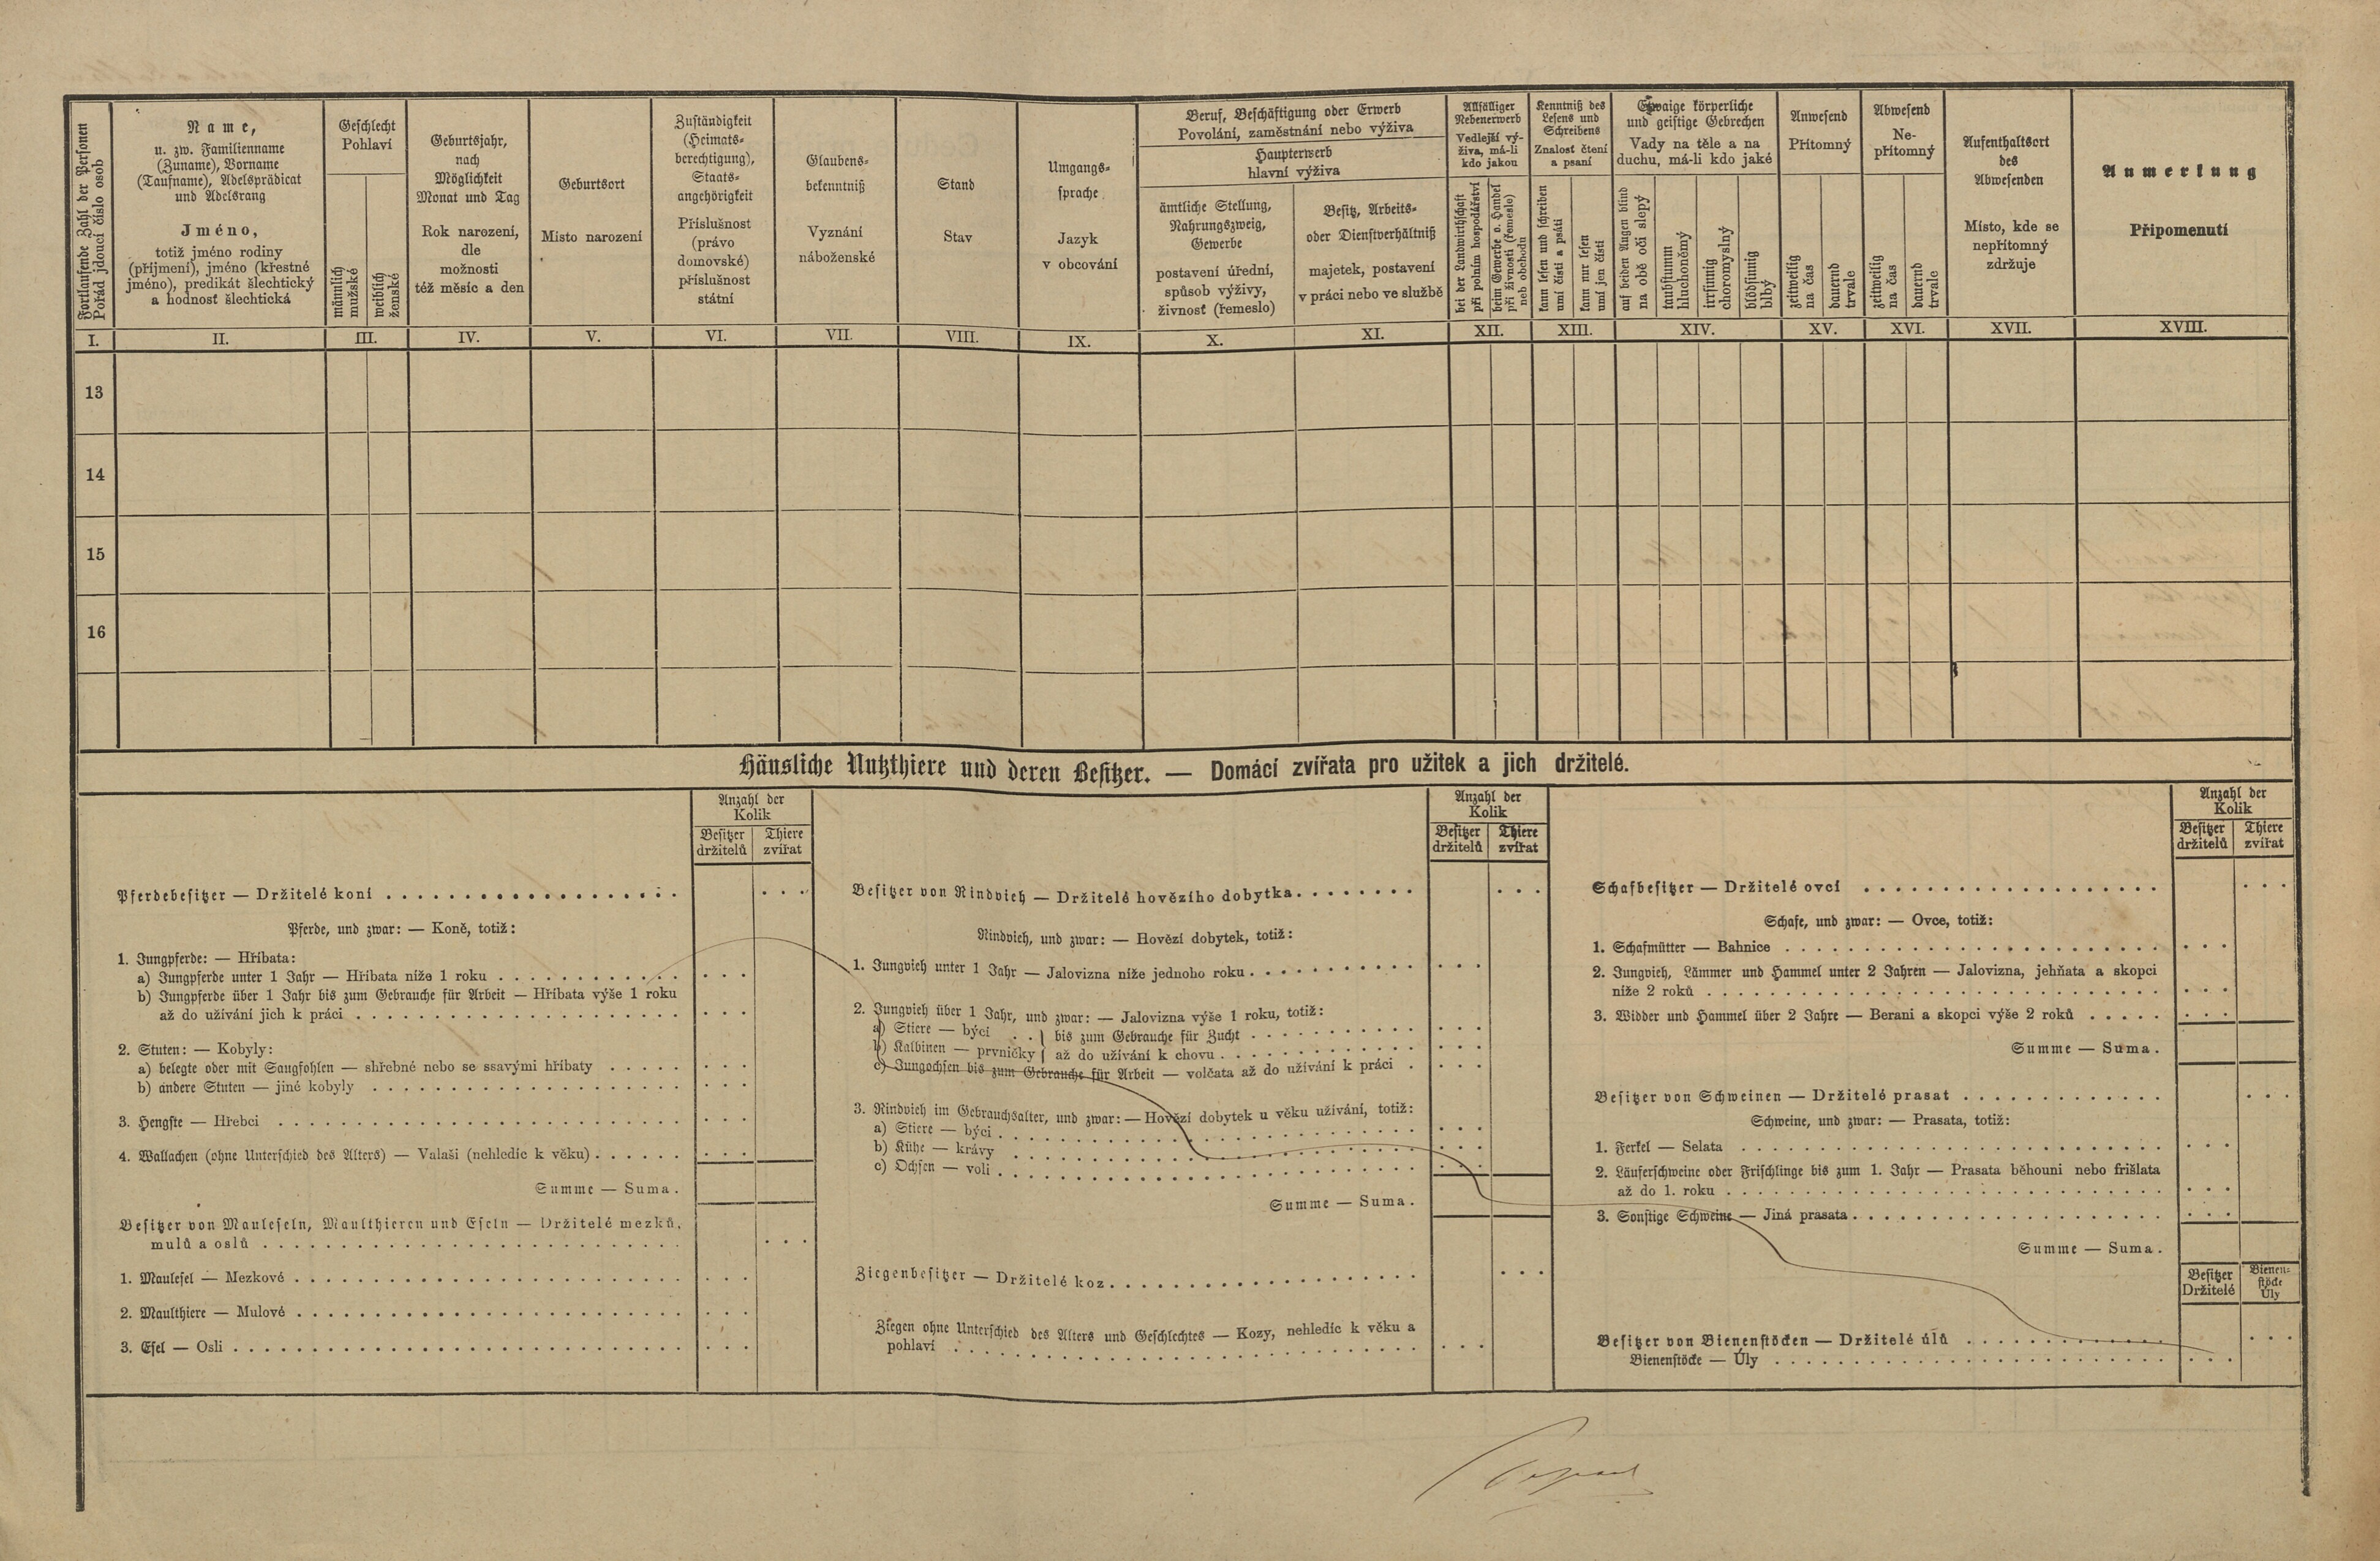 Fortlaufende Zahl der Personen
Pořád jdoucí číslo osob
Name,
u. zw. Familienname
(Zuname), Vorname
(Taufname), Adelsprädicat
und Adelsrang
Jméno,
totiž jméno rodiny
(příjmení), jméno (křestné
jméno), predikát šlechtický
a hodnost šlechtická
Geschlecht
Pohlaví
männlich
mužské
weiblich
ženské
Geburtsjahr,
nach
Möglichkeit
Monat und Tag
Rok narození,
dle
možnosti
též měsíc a den
Geburtsort
Místo narození
Zuständigkeit
(Heimats-
berechtigung),
Staats-
angehörigkeit
Příslušnost
(právo
domovské)
příslušnost
státní
Glaubens-
bekenntniß
Vyznání
náboženské
Stand
Stav
Umgangs-
sprache
Jazyk
v obcování
Beruf, Beschäftigung oder Erwerb
Povolání, zaměstnání nebo výživa
Haupterwerb
hlavní výživa
ämtliche Stellung,
Nahrungszweig,
Gewerbe
postavení úřední,
spůsob výživy,
živnosť (řemeslo)
Besitz, Arbeits-
oder Dienstverhältniß
majetek, postavení
v práci nebo ve službě
Allfälliger
Nebenerwerb
Vedlejší vý-
živa, má-li
kdo jakou
bei der Landwirthschaft
při polním hospodářství
beim Gewerbe o. Handel
při živnosti (řemesle)
neb obchodu
Kenntniß des
Lesens und
Schreibens
Znalosť čtení
a psaní
kann lesen und schreiben
umí čísti a psáti
kann nur lesen
umí jen čísti
Etwaige körperliche
und geistige Gebrechen
Vady na těle a na
duchu, má-li kdo jaké
auf beiden Augen blind
na obě oči slepý
taubstumm
hluchoněmý
irrsinnig
choromyslný
blödsinnig
blbý
Anwesend
Přítomný
zeitweilig
na čas
dauernd
trvale
Abwesend
Ne-
přítomný
zeitweilig
na čas
dauernd
trvale
Aufenthaltsort
des
Abwesenden
Místo, kde se
nepřítomný
zdržuje
Anmerkung
Připomenutí
I. II. III. IV. V. VI. VII. VIII. IX. X. XI. XII. XIII. XIV. XV. XVI. XVII. XVIII.
13
14
15
16
Häusliche Nutzthiere und deren Besitzer. — Domácí zvířata pro užitek a jich držitelé.
Anzahl der
Kolik
Besitzer
držitelů
Thiere
zvířat
Pferdebesitzer — Držitelé koní
Pferde, und zwar: — Koně, totiž:
1. Jungpferde: — Hříbata:
a) Jungpferde unter 1 Jahr — Hříbata níže 1 roku
b) Jungpferde über 1 Jahr bis zum Gebrauche für Arbeit — Hříbata výše 1 roku
až do užívání jich k práci
2. Stuten: — Kobyly:
a) belegte oder mit Saugfohlen — shřebné nebo se ssavými hříbaty
b) andere Stuten — jiné kobyly
3. Hengste — Hřebci
4. Wallachen (ohne Unterschied des Alters) — Valaši (nehledíc k věku)
Summe — Suma.
Besitzer von Mauleseln, Maulthieren und Eseln — Držitelé mezků,
mulů a oslů
1. Maulesel — Mezkové
2. Maulthiere — Mulové
3. Esel — Osli
Anzahl der
Kolik
Besitzer
držitelů
Thiere
zvířat
Besitzer von Rindvieh — Držitelé hovězího dobytka
Rindvieh, und zwar: — Hovězí dobytek, totiž:
1. Jungvieh unter 1 Jahr — Jalovizna níže jednoho roku
2. Jungvieh über 1 Jahr, und zwar: — Jalovizna výše 1 roku, totiž:
a) Stiere — býci . . } bis zum Gebrauche für Zucht
b) Kalbinen — prvničky } až do užívání k chovu
c) Jungochsen bis zum Gebrauche für Arbeit — volčata až do užívání k práci
3. Rindvieh im Gebrauchsalter, und zwar: — Hovězí dobytek u věku užívání, totiž:
a) Stiere — býci
b) Kühe — krávy
c) Ochsen — voli
Summe — Suma.
Ziegenbesitzer — Držitelé koz
Ziegen ohne Unterschied des Alters und Geschlechtes — Kozy, nehledíc k věku a
pohlaví
Anzahl der
Kolik
Besitzer
držitelů
Thiere
zvířat
Schafbesitzer — Držitelé ovcí
Schafe, und zwar: — Ovce, totiž:
1. Schafmütter — Bahnice
2. Jungvieh, Lämmer und Hammel unter 2 Jahren — Jalovizna, jehňata a skopci
níže 2 roků
3. Widder und Hammel über 2 Jahre — Berani a skopci výše 2 roků
Summe — Suma.
Besitzer von Schweinen — Držitelé prasat
Schweine, und zwar: — Prasata, totiž:
1. Ferkel — Selata
2. Läuferschweine oder Frischlinge bis zum 1. Jahr — Prasata běhouni nebo frišlata
až do 1. roku
3. Sonstige Schweine — Jiná prasata
Summe — Suma.
Besitzer
Držitelé
Bienen-
stöcke
Úly
Besitzer von Bienenstöcken — Držitelé úlů
Bienenstöcke — Úly